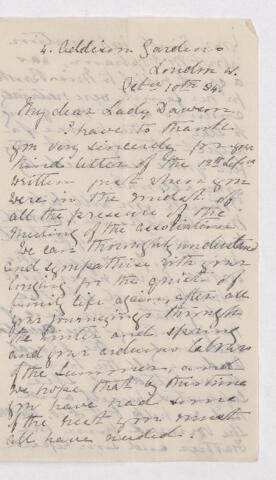 4. Addison Gardens
London W.
Octr 10th 84.
My dear Lady Dawson
I have to thank
you very sincerely for your
kind letter of the 12th Septr
written just when you
were in the midst of
all the pressure of the
meeting of the association
We can thoroughly understand
and sympathise with your
longing for the quiet of
family life again, after all
your journeyings through
the winter and spring
and your arduous labors
of the summer, and
we hope that by this time
you have had some
of the rest you must
all have needed.